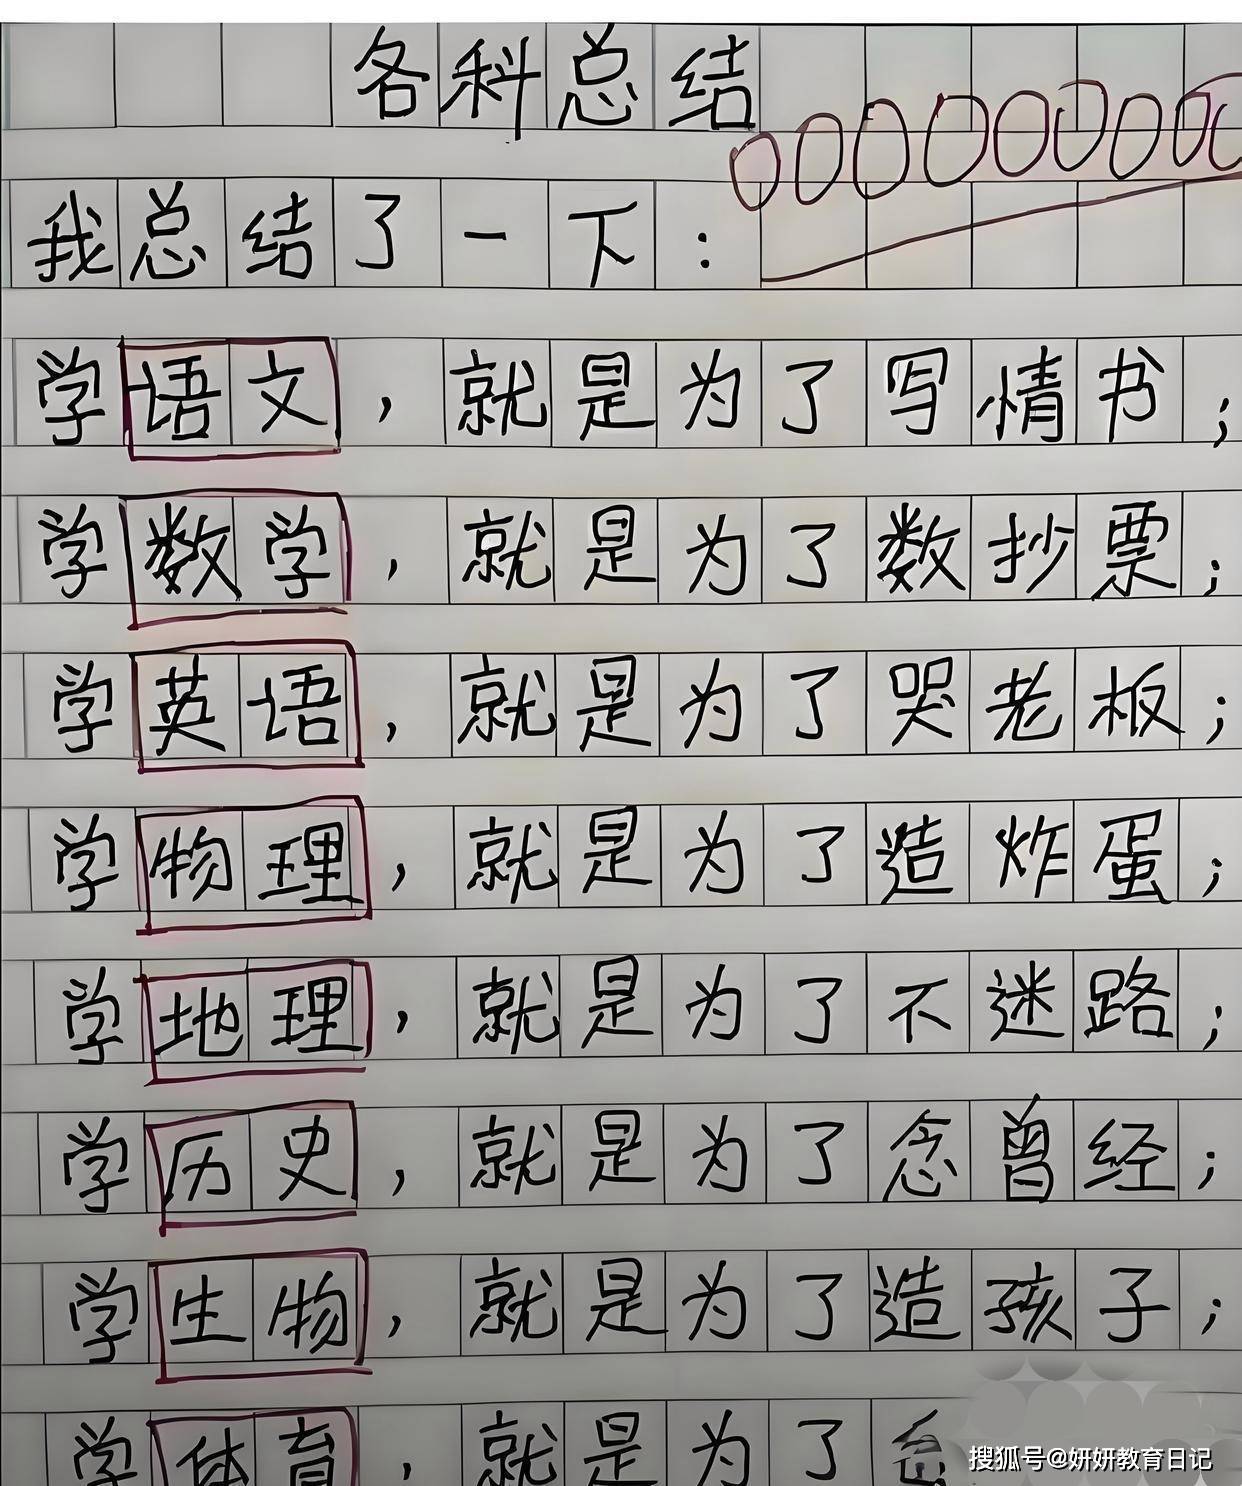 各科总结
我总结了一下：
学语文，就是为了写情书；
学数学，就是为了数抄票；
学英语，就是为了哭老板；
学物理，就是为了造炸蛋；
学地理，就是为了不迷路；
学历史，就是为了念曾经；
学生物，就是为了造孩子；
学体育，就是为了
搜狐号@妍妍教育日记